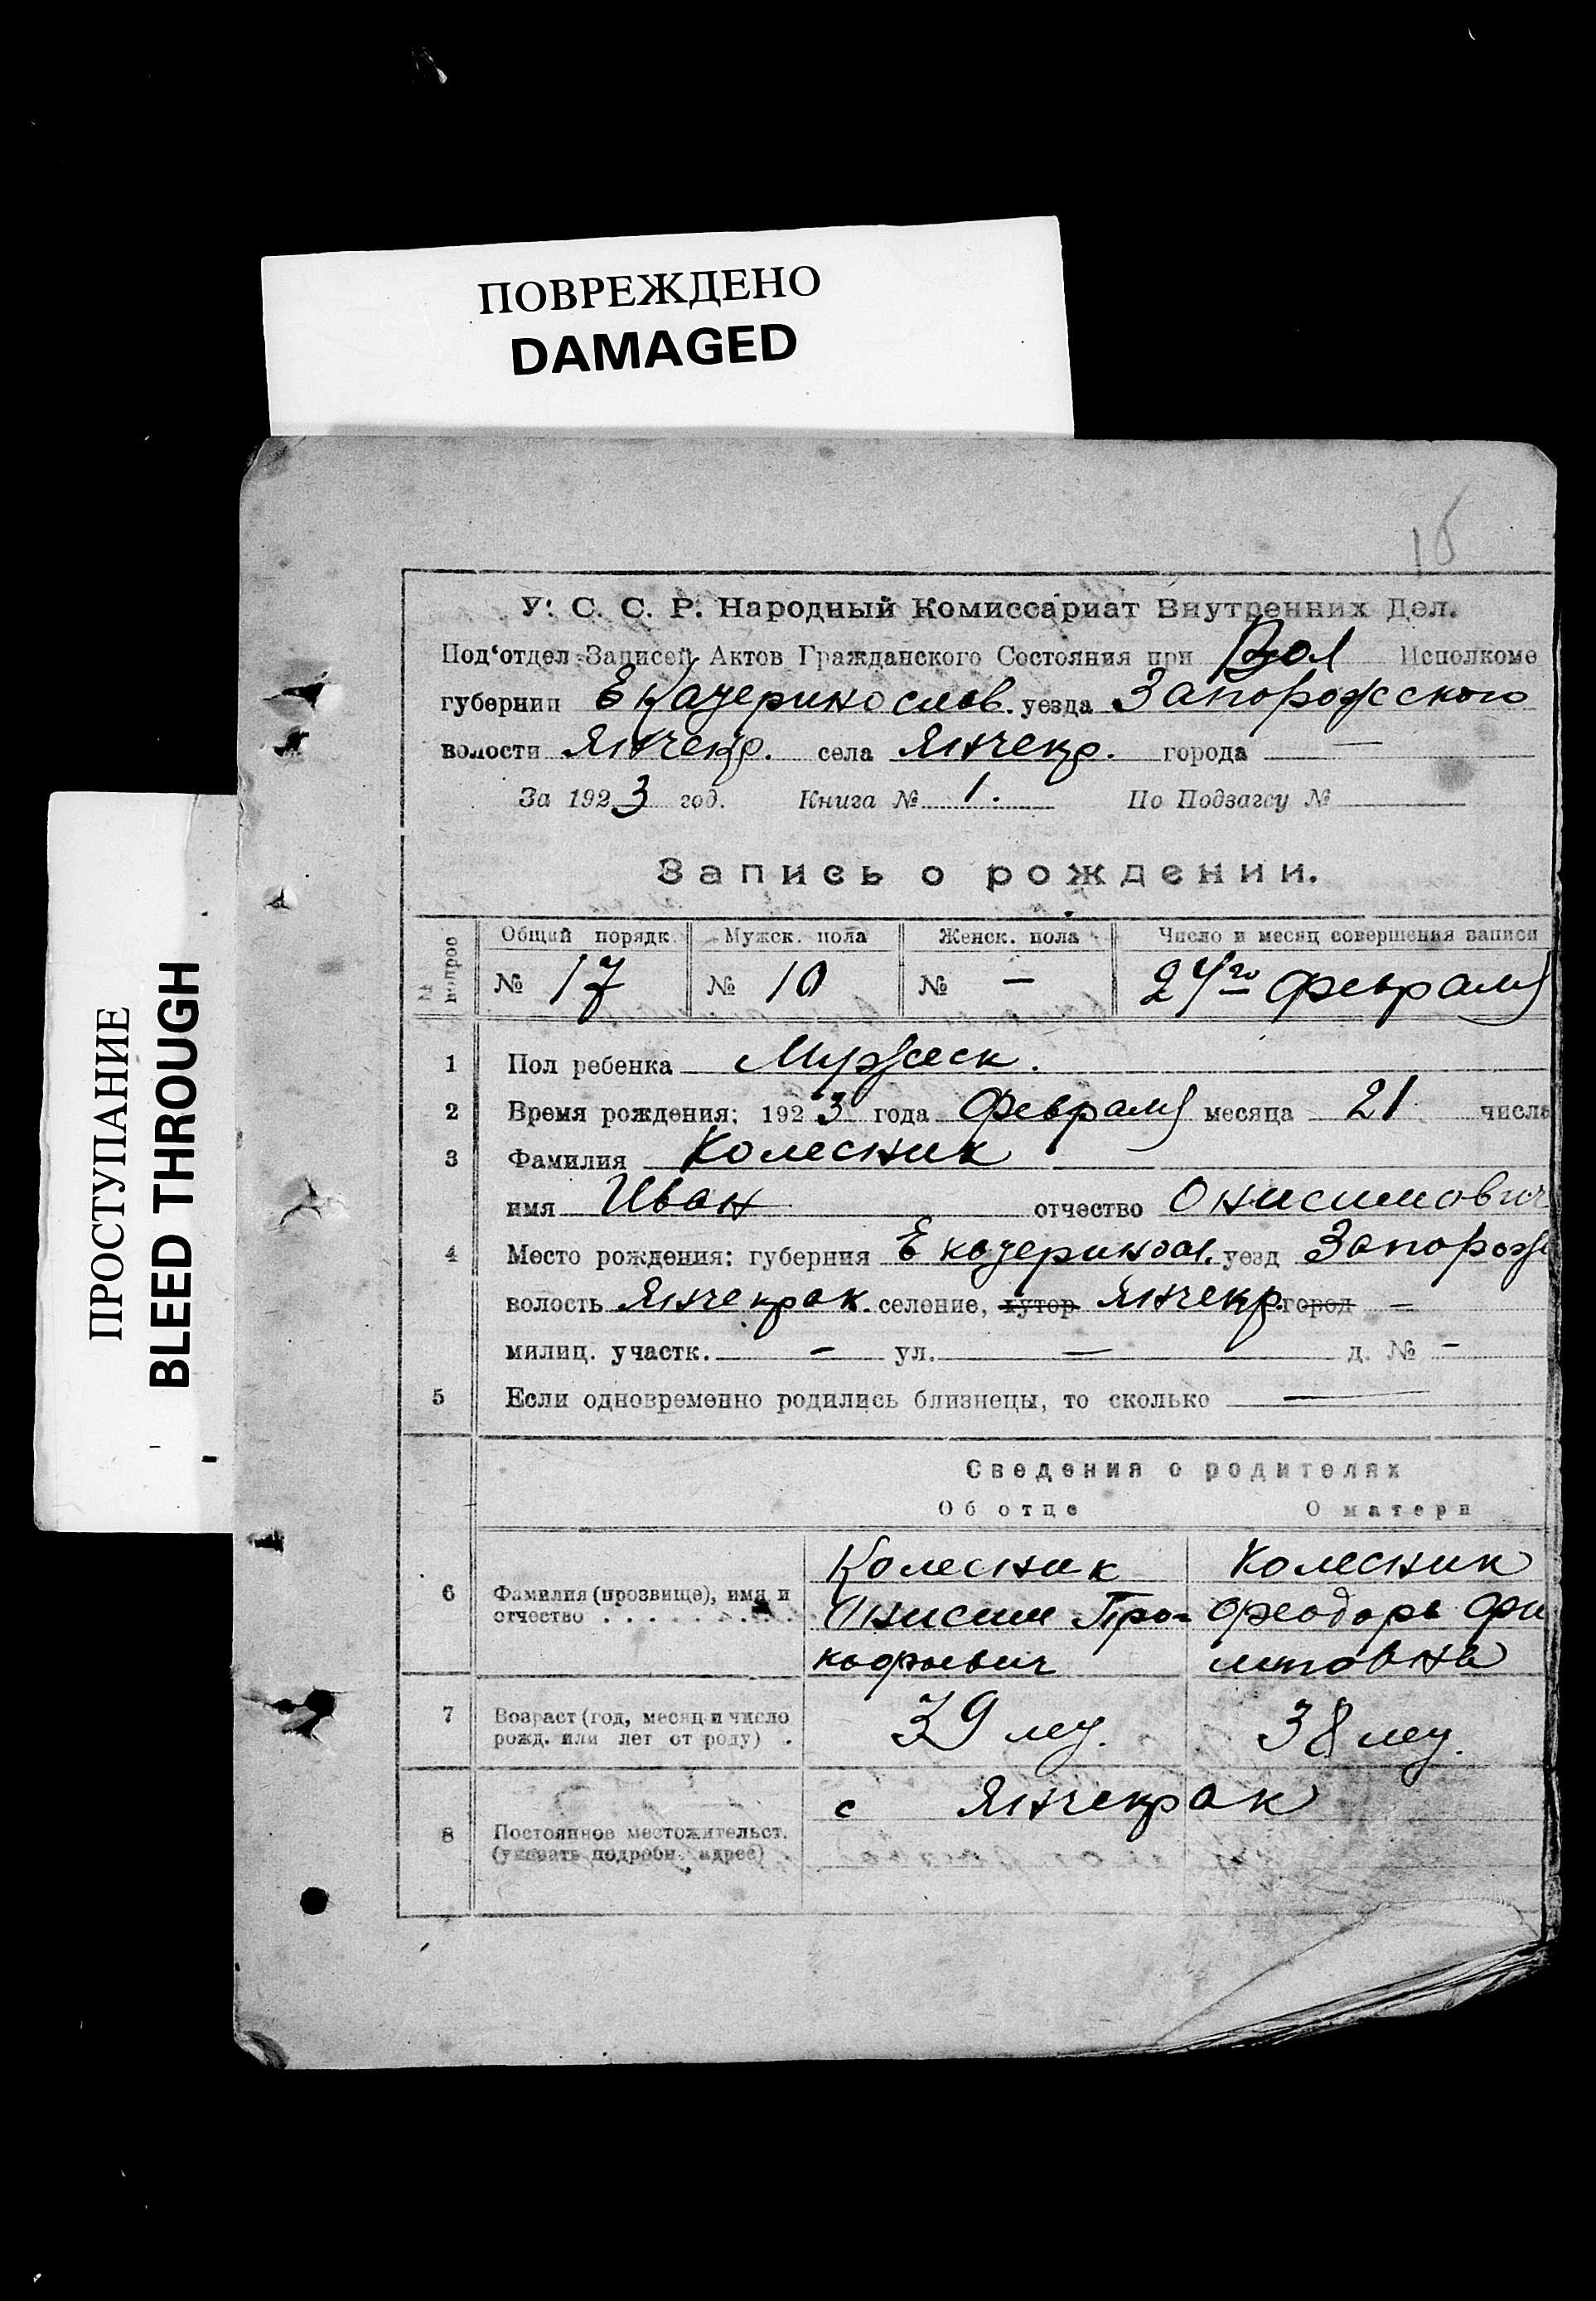 ПОВРЕЖДЕНО
DAMAGED
ПРОСТУПАНИЕ
BLEED THROUGH
15
У. С. С. Р. Народный Комиссариат Внутренних Дел.
Под‘отдел Записей Актов Гражданского Состояния при Вол Исполкоме
губернии Екатеринослав. уезда Запорожского
волости Янчекр. села Янчекр. города —
За 1923 год. Книга № 1. По Подзагсу №
Запись о рождении.
№ вопрос Общий порядк. Мужск. пола Женск. пола Число и месяц совершения записи
№ 17 № 10 № — 24го февраля
1 Пол ребенка Мужеск.
2 Время рождения: 1923 года февраля месяца 21 числа
3 Фамилия Колесник
имя Иван отчество Онисимович
4 Место рождения: губерния Екатеринсл. уезд Запорож
волость Янчекрак. селение, хутор Янчекр. город —
милиц. участк. — ул. — д. № —
5 Если одновременно родились близнецы, то сколько —
Сведения о родителях
Об отце О матери
6 Фамилия (прозвище), имя и отчество . . . . . .
Колесник Колесник
Онисим Про= Феодора Фи
кофиевич
7 Возраст (год, месяц и число рожд. или лет от роду) .
39 лет. 38 лет.
с Янчекрак
8 Постоянное местожительст. (указать подробн. адрес)